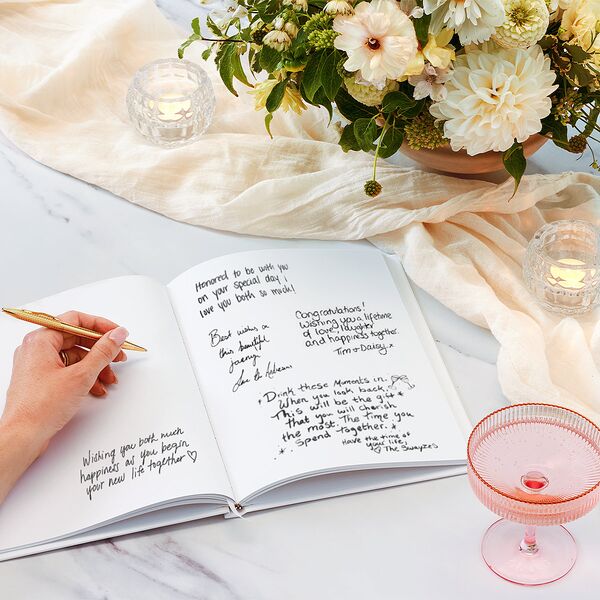 Wishing you both much
happiness as you begin
your new life together ♡
Honored to be with you
on your special day!
love you both so much!
Best wishes on
this beautiful
Congratulations!
Wishing you a lifetime
of love, laughter
and happiness together.
Tim + Daisy
Drink these moments in.
When you look back
This will be the gift
that you will cherish
the most. The time you
Spend together.
Have the time of
your life,
♡ The Swayzes